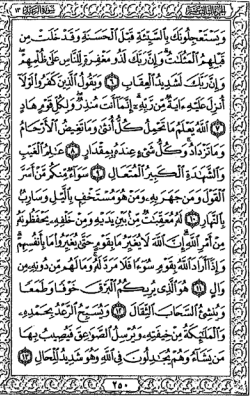 وَيَسْتَعْجِلُونَكَ بِالسَّيِّئَةِ قَبْلَ الْحَسَنَةِ وَقَدْ خَلَتْ مِن
قَبْلِهِمُ الْمَثُلَاتُ وَإِنَّ رَبَّكَ لَذُو مَغْفِرَةٍ لِّلنَّاسِ عَلَىٰ ظُلْمِهِمْ
وَإِنَّ رَبَّكَ لَشَدِيدُ الْعِقَابِ ٦ وَيَقُولُ الَّذِينَ كَفَرُوا لَوْلَا
أُنزِلَ عَلَيْهِ آيَةٌ مِّن رَّبِّهِ إِنَّمَا أَنتَ مُنذِرٌ وَلِكُلِّ قَوْمٍ هَادٍ
٧ اللَّهُ يَعْلَمُ مَا تَحْمِلُ كُلُّ أُنثَىٰ وَمَا تَغِيضُ الْأَرْحَامُ
وَمَا تَزْدَادُ وَكُلُّ شَيْءٍ عِندَهُ بِمِقْدَارٍ ٨ عَالِمُ الْغَيْبِ
وَالشَّهَادَةِ الْكَبِيرُ الْمُتَعَالِ ٩ سَوَاءٌ مِّنكُم مَّنْ أَسَرَّ
الْقَوْلَ وَمَن جَهَرَ بِهِ وَمَنْ هُوَ مُسْتَخْفٍ بِاللَّيْلِ وَسَارِبٌ
بِالنَّهَارِ ١٠ لَهُ مُعَقِّبَاتٌ مِّن بَيْنِ يَدَيْهِ وَمِنْ خَلْفِهِ يَحْفَظُونَهُ
مِنْ أَمْرِ اللَّهِ إِنَّ اللَّهَ لَا يُغَيِّرُ مَا بِقَوْمٍ حَتَّىٰ يُغَيِّرُوا مَا بِأَنفُسِهِمْ
وَإِذَا أَرَادَ اللَّهُ بِقَوْمٍ سُوءًا فَلَا مَرَدَّ لَهُ وَمَا لَهُم مِّن دُونِهِ مِن
وَالٍ ١١ هُوَ الَّذِي يُرِيكُمُ الْبَرْقَ خَوْفًا وَطَمَعًا
وَيُنشِئُ السَّحَابَ الثِّقَالَ ١٢ وَيُسَبِّحُ الرَّعْدُ بِحَمْدِهِ
وَالْمَلَائِكَةُ مِنْ خِيفَتِهِ وَيُرْسِلُ الصَّوَاعِقَ فَيُصِيبُ بِهَا
مَن يَشَاءُ وَهُمْ يُجَادِلُونَ فِي اللَّهِ وَهُوَ شَدِيدُ الْمِحَالِ ١٣
٢٥٠